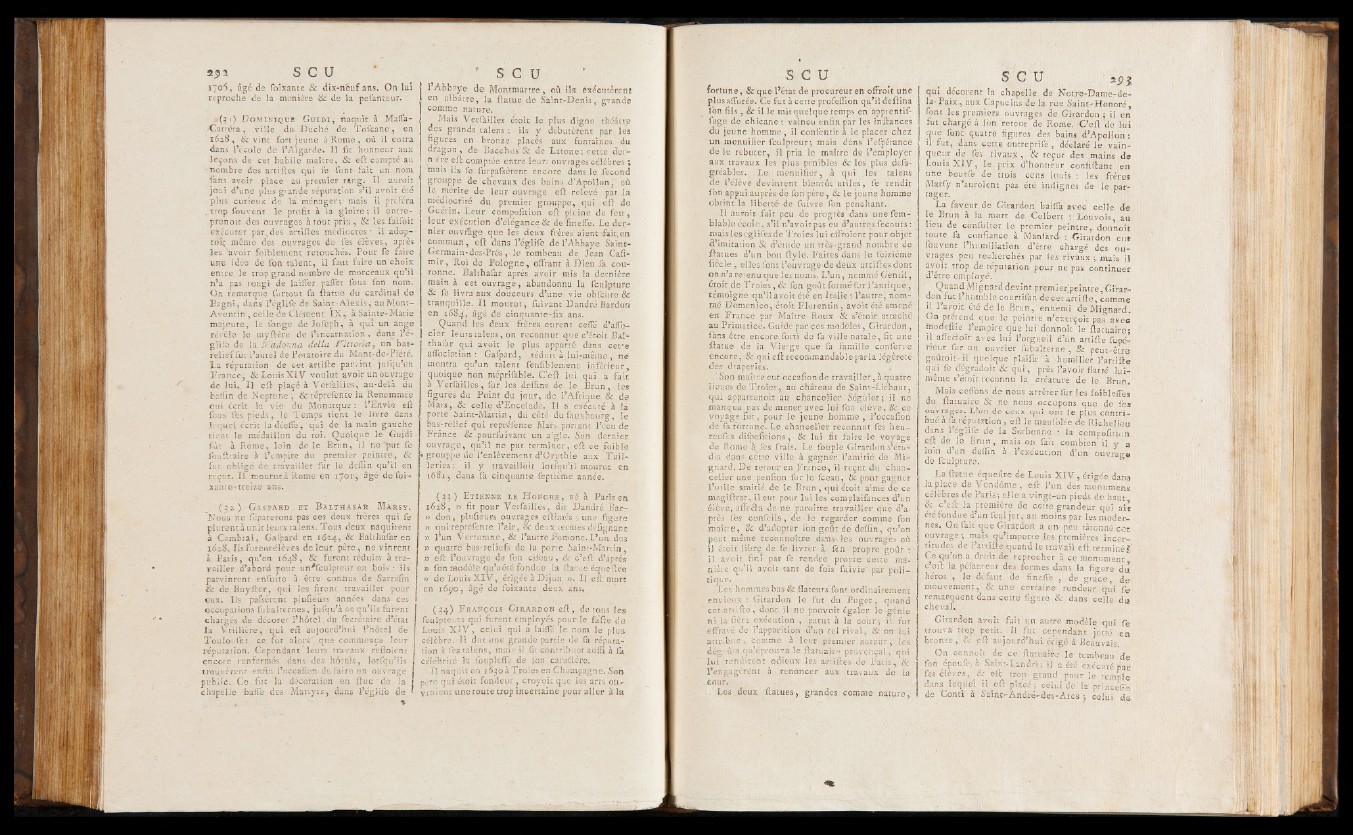 292 S C U
1705, âgé de soixante & dix-neuf ans. On lui
reproche de la manière & de la pesanteur.
(21) DOMINIQUE GUIDI, naquit à Massa-
Carrera, ville du Duché de Toscane, en
1628, & vint fort jeune à Rome, où il entra
dans l'école de l'Algarde. Il fit honneur aux
leçons de cet habile maître, & est compté au
nombre des artistes qui se sont fait un nom
sans avoir place au premier rang. Il auroit
joui d'une plus grande réputation s'il avoit été
plus curieux de la ménager; mais il préféra
trop souvent le profit à la gloire: il entre-
prenoit des ouvrages à tout prix, & les faisoit
exécuter par des artistes médiocres: il adop-
toit même des ouvrages de ses élèves, après
les avoir foiblement retouchés. Pour se faire
une idée de son talent, il faut faire un choix
entre le trop grand nombre de morceaux qu'il
n'a pas rougi de laisser passer sous son nom.
On remarque surtout sa statue du cardinal de
Bagni, dans l'église de Saint-Alexis, au Mont-
Aventin, celle de Clément IX, à Sainte-Marie
majeure, le songe de Joseph, à qui un ange
révèle le mystère de l'incarnation, dans l'é-
glise de la Madonna della Vittoria, un bas-
relief sur l'autel de l'oratoire du Mont-de-Piété.
La réputation de cet artiste parvint jusqu'en
France, & Louis XIV voulut avoir un ouvrage
de lui. Il est placé à Versailles, au-delà du
bassin de Neptune, & représente la Renommée
qui écrit la vie du Monarque: l'Envie est
sous ses pieds, le Temps tient le livre dans
lequel écrit la déesse, qui de la main gauche
tient le médaillon du roi. Quoique le Guidi
fût à Rome, loin de le Brun, il no put se
soustraire à l'empire du premier peintre, &
fut obligé de travailler sur le dessin qu'il en
reçut. Il mourut à Rome en 1701, âgé de soi-
xante-treize ans.
(22) GASPARD ET BALTHASAR MARSY.
Nous ne séparerons pas ces deux frères qui se
plurent à unir leurs talens. Tous deux naquirent
à Cambrai, Gaspard en 1624, & Balthasar en
1628. Ils furent élèves de leur père, ne vinrent
à Paris, qu'en 1648, & furent réduits à tra-
vailler d'abord pour un sculpteur en bois: ils
parvinrent ensuite à être connus de Sarrasin
& de Buyster, qui les firent travailler pour
eux. Ils passèrent plusieurs années dans ces
occupations subalternes, jusqu'à ce qu'ils furent
chargés de décorer l'hôtel du secrétaire d'état
la Vrillière, qui est aujourd'hui l'hôtel de
Toulouse: ce fut alors que commença leur
réputation. Cependant leurs travaux restoient
encore renfermés dans des hôtels, lorsqu'ils
trouvèrent enfin l'occasion de faire un ouvrage
public. Ce fut la décoration en stuc de la
chapelle basse des Martyrs, dans l'église de
S C U
l'Abbaye de Montmartre, où ils exécutèrent
en albâtre, la statue de Saint-Denis, grande
comme nature.
Mais Versailles étoit le plus digne théâtre
des grands talens: ils y débutèrent par les
figures en bronze placés aux fontaines du
dragon, de Bacchus & de Latone: cette der-
nière est comptée entre leurs ouvrages célèbres;
mais ils se surpassèrent encore dans le second
grouppe de chevaux des bains d'Apollon, où
le mérite de leur ouvrage est relevé par la
médiocrité du premier grouppe, qui est de
Guérin. Leur composition est pleine de feu,
leur exécution d'élégance & de finesse. Le der-
nier ouvrage que les deux frères aient fait en
commun, est dans l'église de l'Abbaye Saint-
Germain-des-Prés, le tombeau de Jean Casi-
mir, Roi de Pologne, offrant à Dieu sa cou-
ronne. Balthasar après avoir mis la dernière
main à cet ouvrage, abandonna la sculpture
& se livra aux douceurs d'une vie obscure &
tranquille. Il mourut, suivant Dandré Bardon
en 1684, âgé de cinquante-six ans.
Quand les deux frères eurent cessé d'asso-
cier leurs talens, on reconnut que c'étoit Bal-
thasar qui avoit le plus apporté dans cette
association: Gaspard, réduit à lui-même, ne
montra qu'un talent sensiblement inférieur,
quoique non méprisable. C'est lui qui a fait
à Versailles, sur les dessins de le Brun, les
figures du Point du jour, de l'Afrique & de
Mars, & celle d'Encelade. Il a exécuté à la
porte Saint-Martin, du côté du fauxbourg, le
bas-relief qui représente Mars portant l'écu de
France & poursuivant un aigle. Son dernier
ouvrage, qu'il ne put terminer, est ce foible
grouppe de l'enlèvement d'Orythie aux Tuil-
leries: il y travailloit lorsqu'il mourut en
1681, dans sa cinquante septième année.
(23) ETIENNE LE HONGRE, né à Paris en
1628, » fit pour Versailles, dit Dandré Bar-
» don, plusieurs ouvrages estimés: une figure
» qui représente l'air, & deux termes désignant
» l'un Vertumne, & l'autre Pomone. L'un des
» quatre bas-reliefs de la porte Saint-Martin,
» est l'ouvrage de son ciseau, & c'est d'après
» son modèle qu'a été fondue la statue équestre
» de Louis XIV, érigée à Dijon ». Il est mort
en 1690, âgé de soixante deux ans.
(24) FRANÇOIS GIRARDON est, de tous les
sculpteurs qui furent employés pour le faste de
Louis XIV, celui qui a laissé le nom le plus
célèbre. Il dut une grande partie de sa réputa-
tion à ses talens, mais il fit contribuer aussi à sa
célébrité la souplesse de son caractère.
Il naquit en 1630 à Troies en Champagne. Son
père qui étoit fondeur, croyoit que les arts ou-
vroient une route trop incertaine pour aller à la
S C U
fortune, & que l'état de procureur en offroit une
plus assurée. Ce fut à cette profession qu'il destina
son fils, & il le mit quelque temps en apprentis-
sage de chicane: vaincu enfin par les instances
du jeune homme, il consentit à le placer chez
un menuisier sculpteur; mais dans l'espérance
de le rebuter, il pria le maître de l'employer
aux travaux les plus pénibles & les plus desa-
gréables. Le menuisier, à qui les talens
de l'élève devinrent bientôt utiles, se rendit
son appui auprès de son père, & le jeune homme
obtint la liberté de suivre son penchant.
Il auroit fait peu de progrès dans une sem-
blable école, s'il n'avoit pas eu d'autres secours:
mais les églises de Troies lui offroient pour objet
d'imitation & d'étude un très-grand nombre de
statues d'un bon style. Faites dans le seizième
siècle, elles sont l'ouvrage de deux artistes dont
on n'a retenu que les noms. L'un, nommé Gentil,
étoit de Troies, & son goût formé sur l'antique,
témoigne qu'il avoit été en Italie: l'autre, nom-
mé Domenico, étoit Florentin, avoit été amené
en France par Maître Roux & s'étoit attaché
au Primatice. Guidé par ces modèles, Girardon,
sans être encore sorti de sa ville natale, fit une
statue de la Vierge que sa famille conserve
encore, & qui est recommandable par la légéreté
des draperies.
Son maître eut occasion de travailler, à quatre
lieues de Troies, au château de Saint-Liébaut,
qui appartenoit au chancelier Séguier; il ne
manqua pas de mener avec lui son élève, & ce
voyage fut, pour le jeune homme, l'occasion
de sa fortune. Le chancelier reconnut ses heu-
reuses dispositions, & lui fit faire le voyage
de Rome à ses frais. Le souple Girardon s'étu-
dia dans cette ville à gagner l'amitié de Mi-
gnard. De retour en France, il reçut du chan-
celier une pension sur le sceau, & pour gagner
l'utile amitié de le Brun, qui étoit aimé de ce
magistrat, il eut pour lui les complaisances d'un
élève, affecta de ne paroître travailler que d'a-
près ses conseils, de le regarder comme son
maître, & d'adopter son goût de dessin, qu'on
peut même reconnoître dans les ouvrages où
il étoit libre de se livrer à son propre goût:
il avoit fini par se rendre propre cette ma-
nière qu'il avoit tant de fois suivie par poli-
tique.
Les hommes bas & flateurs sont ordinairement
envieux: Girardon le fut du Puget, quand
cet artiste, dont il ne pouvoit égaler le génie
ni la fière exécution, parut à la cour; il fut
effrayé de l'apparition d'un tel rival, & on lui
attribue, comme à leur premier auteur, les
dégoûts qu'éprouva le statuaire provençal, qui
lui rendirent odieux les artistes de Paris, &
l'engagèrent à renoncer aux travaux de la
cour.
Les deux statues, grandes comme nature,
S C U 293
qui décorent la chapelle de Notre-Dame-de-
la-Paix, aux Capucins de la rue Saint-Honoré,
sont les premiers ouvrages de Girardon; il en
fut chargé à son retour de Rome. C'est de lui
que sont quatre figures des bains d'Apollon:
il fut, dans cette entreprise, déclaré le vain-
queur de ses rivaux, & reçut des mains de
Louis XIV, le prix d'honneur consistant en
une bourse de trois cens louis: les frères
Marsy n'auroient pas été indignes de le par-
tager.
La faveur de Girardon baissa avec celle de
le Brun à la mort de Colbert: Louvois, au
lieu de consulter le premier peintre, donnoit
toute sa confiance à Mansard: Girardon eut
souvent l'humiliation d'être chargé des ou-
vrages peu recherchés par ses rivaux; mais il
avoit trop de réputation pour ne pas continuer
d'être employé.
Quand Mignard devint premier peintre, Girar-
don fut l'humble courtisan de cet artiste, comme
il l'avoit été de le Brun, ennemi de Mignard.
On prétend que le peintre n'exerçoit pas avec
modestie l'empire que lui donnoit le statuaire;
il affectoit avec lui l'orgueil d'un artiste supé-
rieur sur un ouvrier subalterne, & peut-être
goûtoit-il quelque plaisir à humilier l'artiste
qui se dégradoit & qui, près l'avoir flatté lui-
même s'étoit reconnu la créature de le Brun.
Mais cessons de nous arrêter sur les foiblesses
du statuaire & ne nous occupons que de ses
ouvrages. L'un de ceux qui ont le plus contri-
bué à sa réputation, est le mausolée de Richelieu
dans l'église de la Sorbonne: la composition
est de le Brun, mais on sait combien il y a
loin d'un dessin à l'exécution d'un ouvrage
de sculpture.
La statue équestre de Louis XIV, érigée dans
la place de Vendôme, est l'un des monumens
célèbres de Paris; elle a vingt-un pieds de haut,
& c'est la première de cette grandeur qui ait
été fondue d'un seul jet, au moins par les moder-
nes. On sait que Girardon a un peu tâtonné cet
ouvrage; mais qu'importe les premières incer-
titudes de l'artiste quand le travail est terminé?
Ce qu'on a droit de reprocher à ce monument,
c'est la pésanteur des formes dans la figure du
héros, le défaut de finesse, de grace, de
mouvement, & une certaine rondeur qui se
remarquent dans cette figure & dans celle du
cheval.
Girardon avoit fait un autre modèle qui se
trouva trop petit. Il fut cependant jetté en
bronze, & est aujourd'hui érigé à Beauvais.
On connoît de ce statuaire le tombeau de
son épouse, à Saint-Landri; il a été exécuté par
ses élèves, & est trop grand pour le temple
dans lequel il est placé; celui de la princesse
de Conti à Saint-André-des-Arcs; celui de